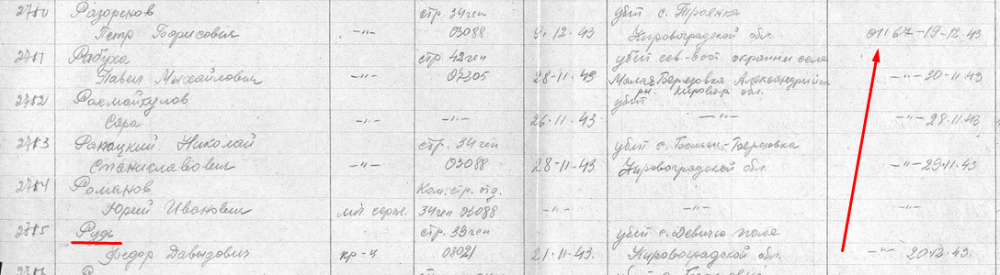 2780 Разоренов стр. 34 ген убит с. Троянка
Петр Борисович -"- 03088 9.12.43 Кировоградской обл. 01167-19-12.43
Рабуха стр. 42 ген убит сев-вост окраины села
Павел Михайлович -"- 07305 28-11-43 Малая Березовка Александрийск -"- 30-11-43
р-н. Кировогр. обл.
2782 Рахмайкулов убит
Сара -"- -"- 26-11-43 -"- -"- 28-11-43
2783 Николай стр. 34 ген убит с.
Станиславович -"- 03088 28-11-43 Кировоградской обл. -"- 29-11-43
2784 Романов Ком. стр. отд.
Юрий Иванович мл серж. 34 ген 03088 -"- -"-
2785 Рудь стр. 39 ген убит с. Девичье поле
Федор Давыдович кр-ц 03021 21-11-43 Кировоградской обл. -"- 20.12.43.